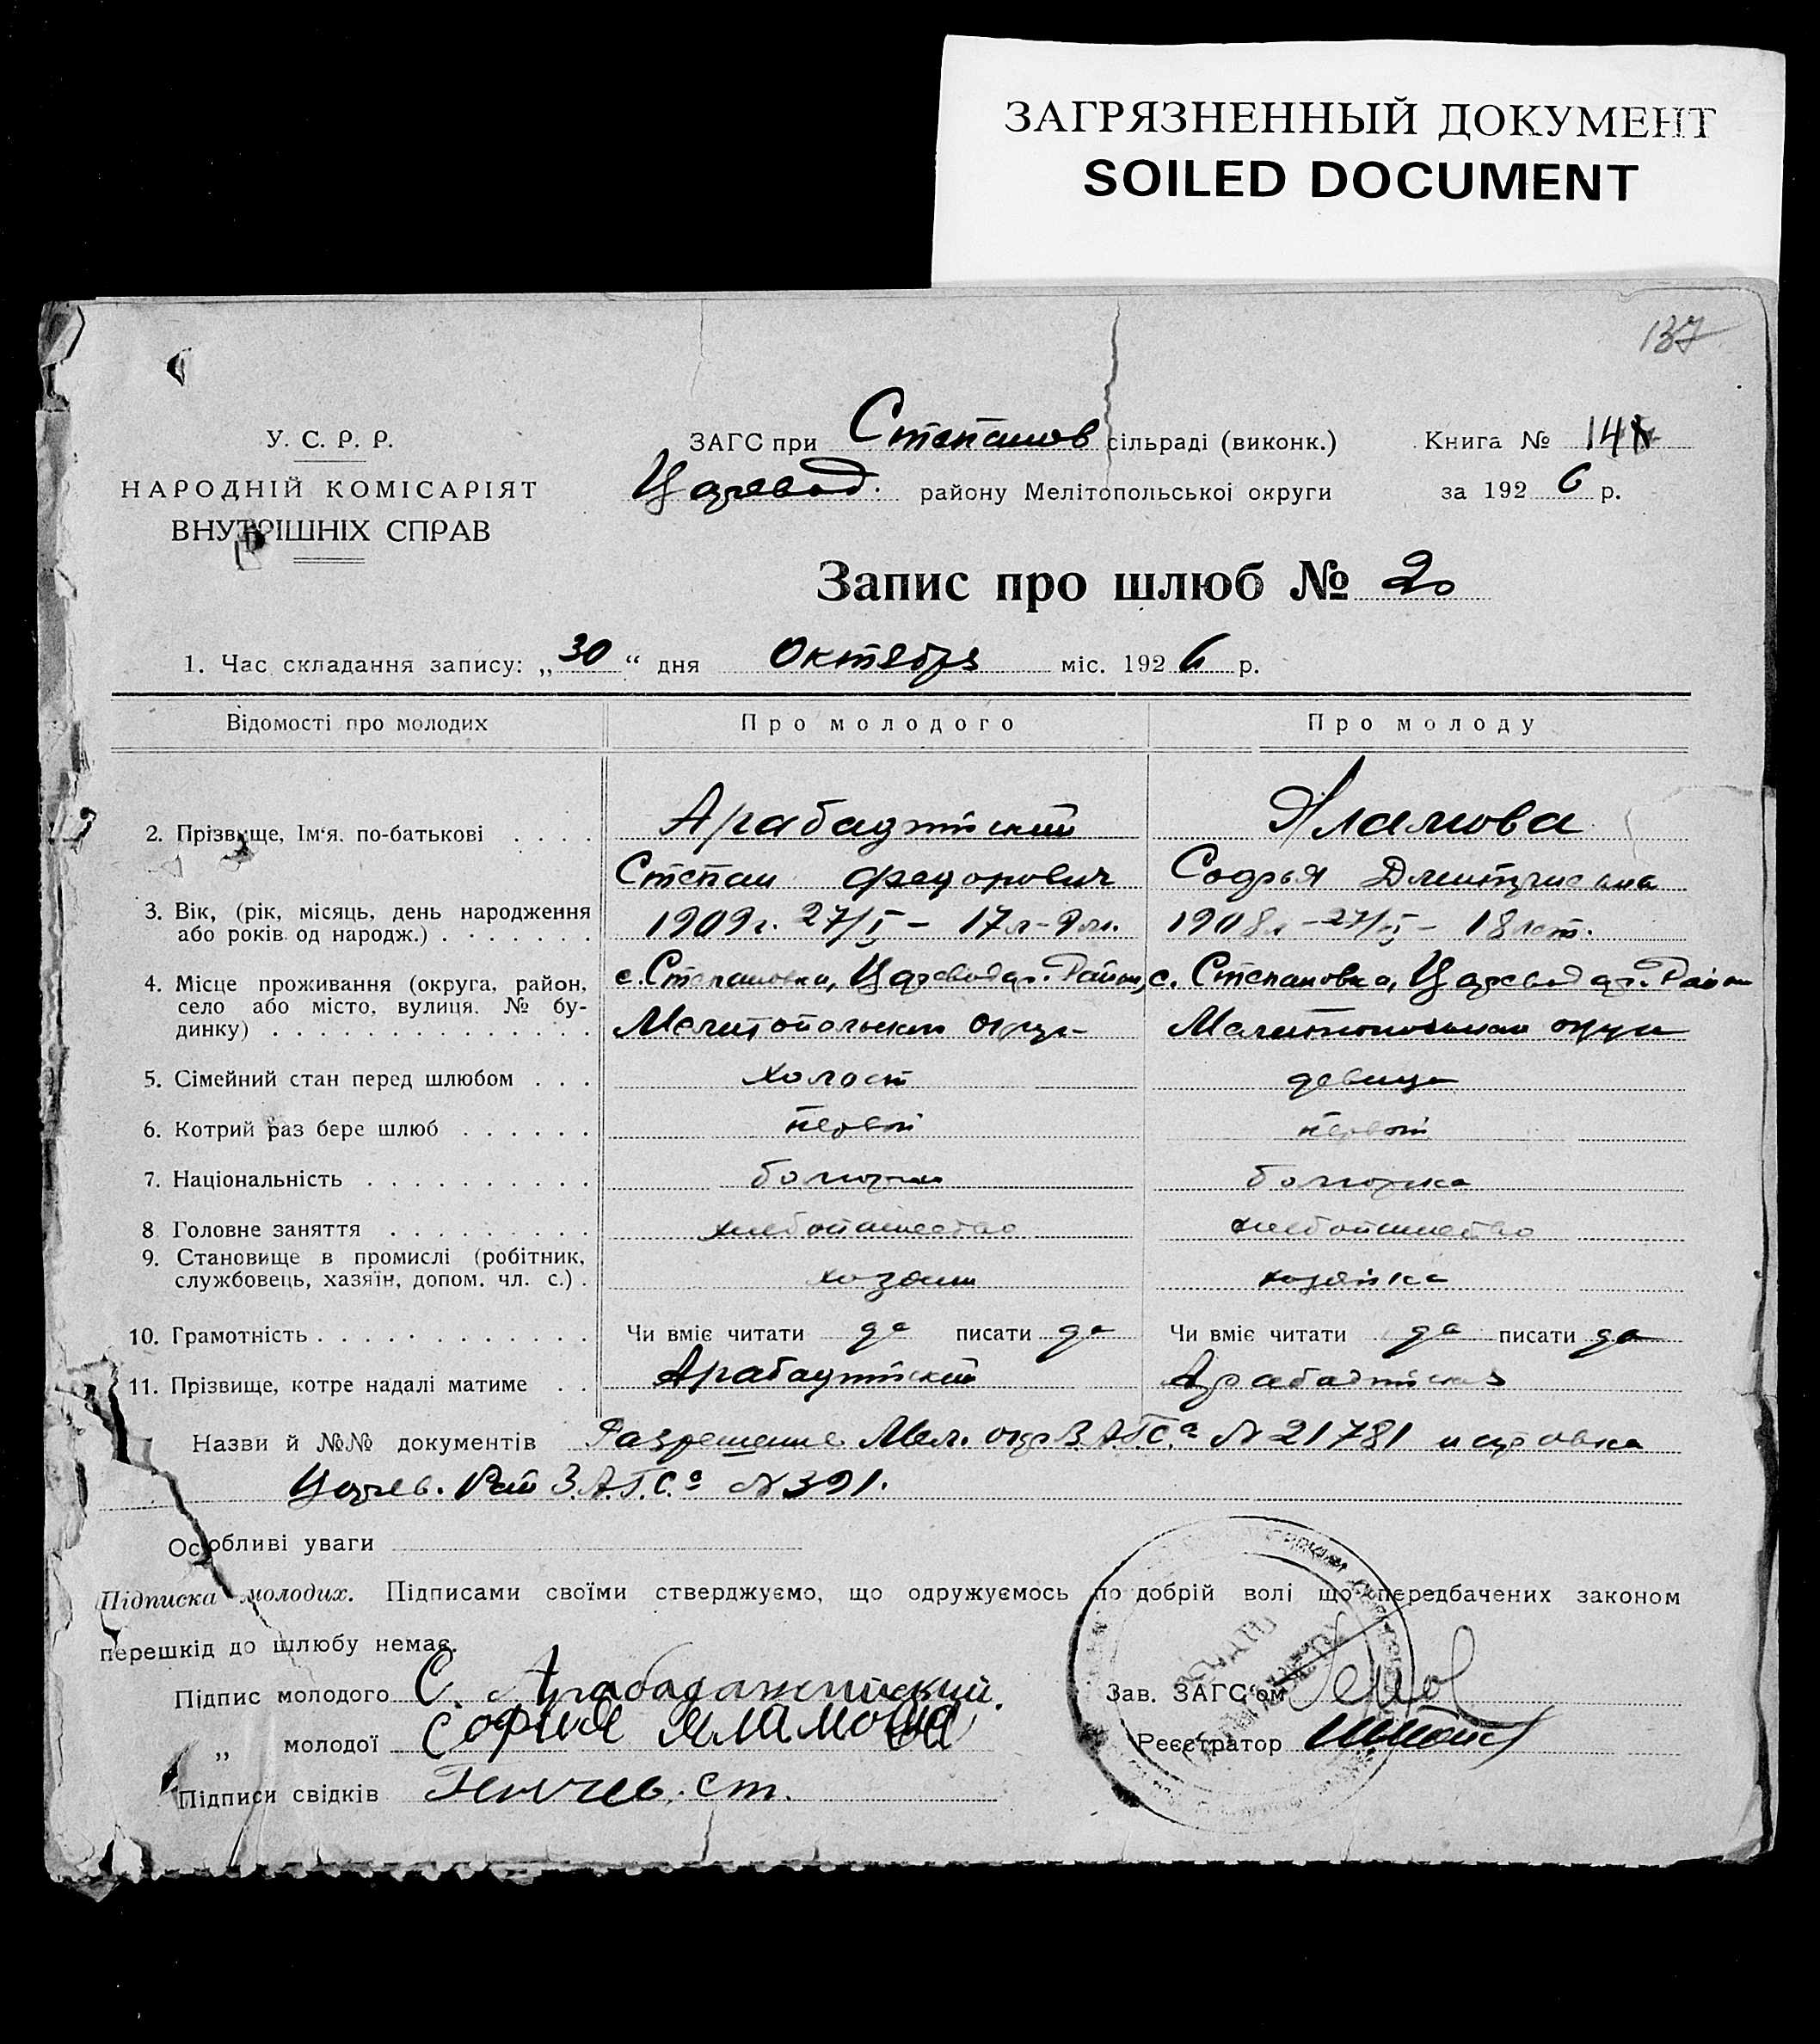 ЗАГРЯЗНЕННЫЙ ДОКУМЕНТ
SOILED DOCUMENT
137
У. С. Р. Р.
НАРОДНІЙ КОМІСАРІЯТ
ВНУТРІШНІХ СПРАВ
ЗАГС при Степанов сільраді (виконк.) Книга №
Царевод. району Мелітопольської округи за 1926 р.
Запис про шлюб № 20
1. Час складання запису: „30“ дня Октября міс. 1926 р.
Відомості про молодих Про молодого Про молоду
2. Прізвище, Ім‘я. по-батькові Арабаджийский Яламова
Степан Федорович Софья Дмитриевна
3. Вік, (рік, місяць, день народження
або років од народж.) 1909г. 27/I – 17л-9м. 1908г – 18 лет.
4. Місце проживання (округа, район,
село або місто, вулиця. № бу-
динку)
с. Степановка, Цареводар. Район, с. Степановка, Цареводар. Район
Мелитопольский округ Мелитопольский округ
5. Сімейний стан перед шлюбом холост девица
6. Котрий раз бере шлюб первый первый
7. Національність болгарин болгарка
8 Головне заняття хлебопашество хлебопашество
9. Становище в промислі (робітник,
службовець, хазяїн, допом. чл. с.) хозяин хозяйка
10. Грамотність Чи вміє читати да писати да Чи вміє читати да писати да
11. Прізвище, котре надалі матиме Арабаджийский Арабаджийская
Назви й №№ документів Разрешение Мел. окр З.А.Г.С.а № 21781 и справка
Царев. Рай З.А.Г.С.а № 391.
Особливі уваги
Підписка молодих. Підписами своїми стверджуємо, що одружуємось по добрій волі що передбачених законом
перешкід до шлюбу немає.
Підпис молодого С. Арабаджийский. Зав. ЗАГС‘ом
„ молодої София Яламова Реєстратор
Підписи свідків ст.